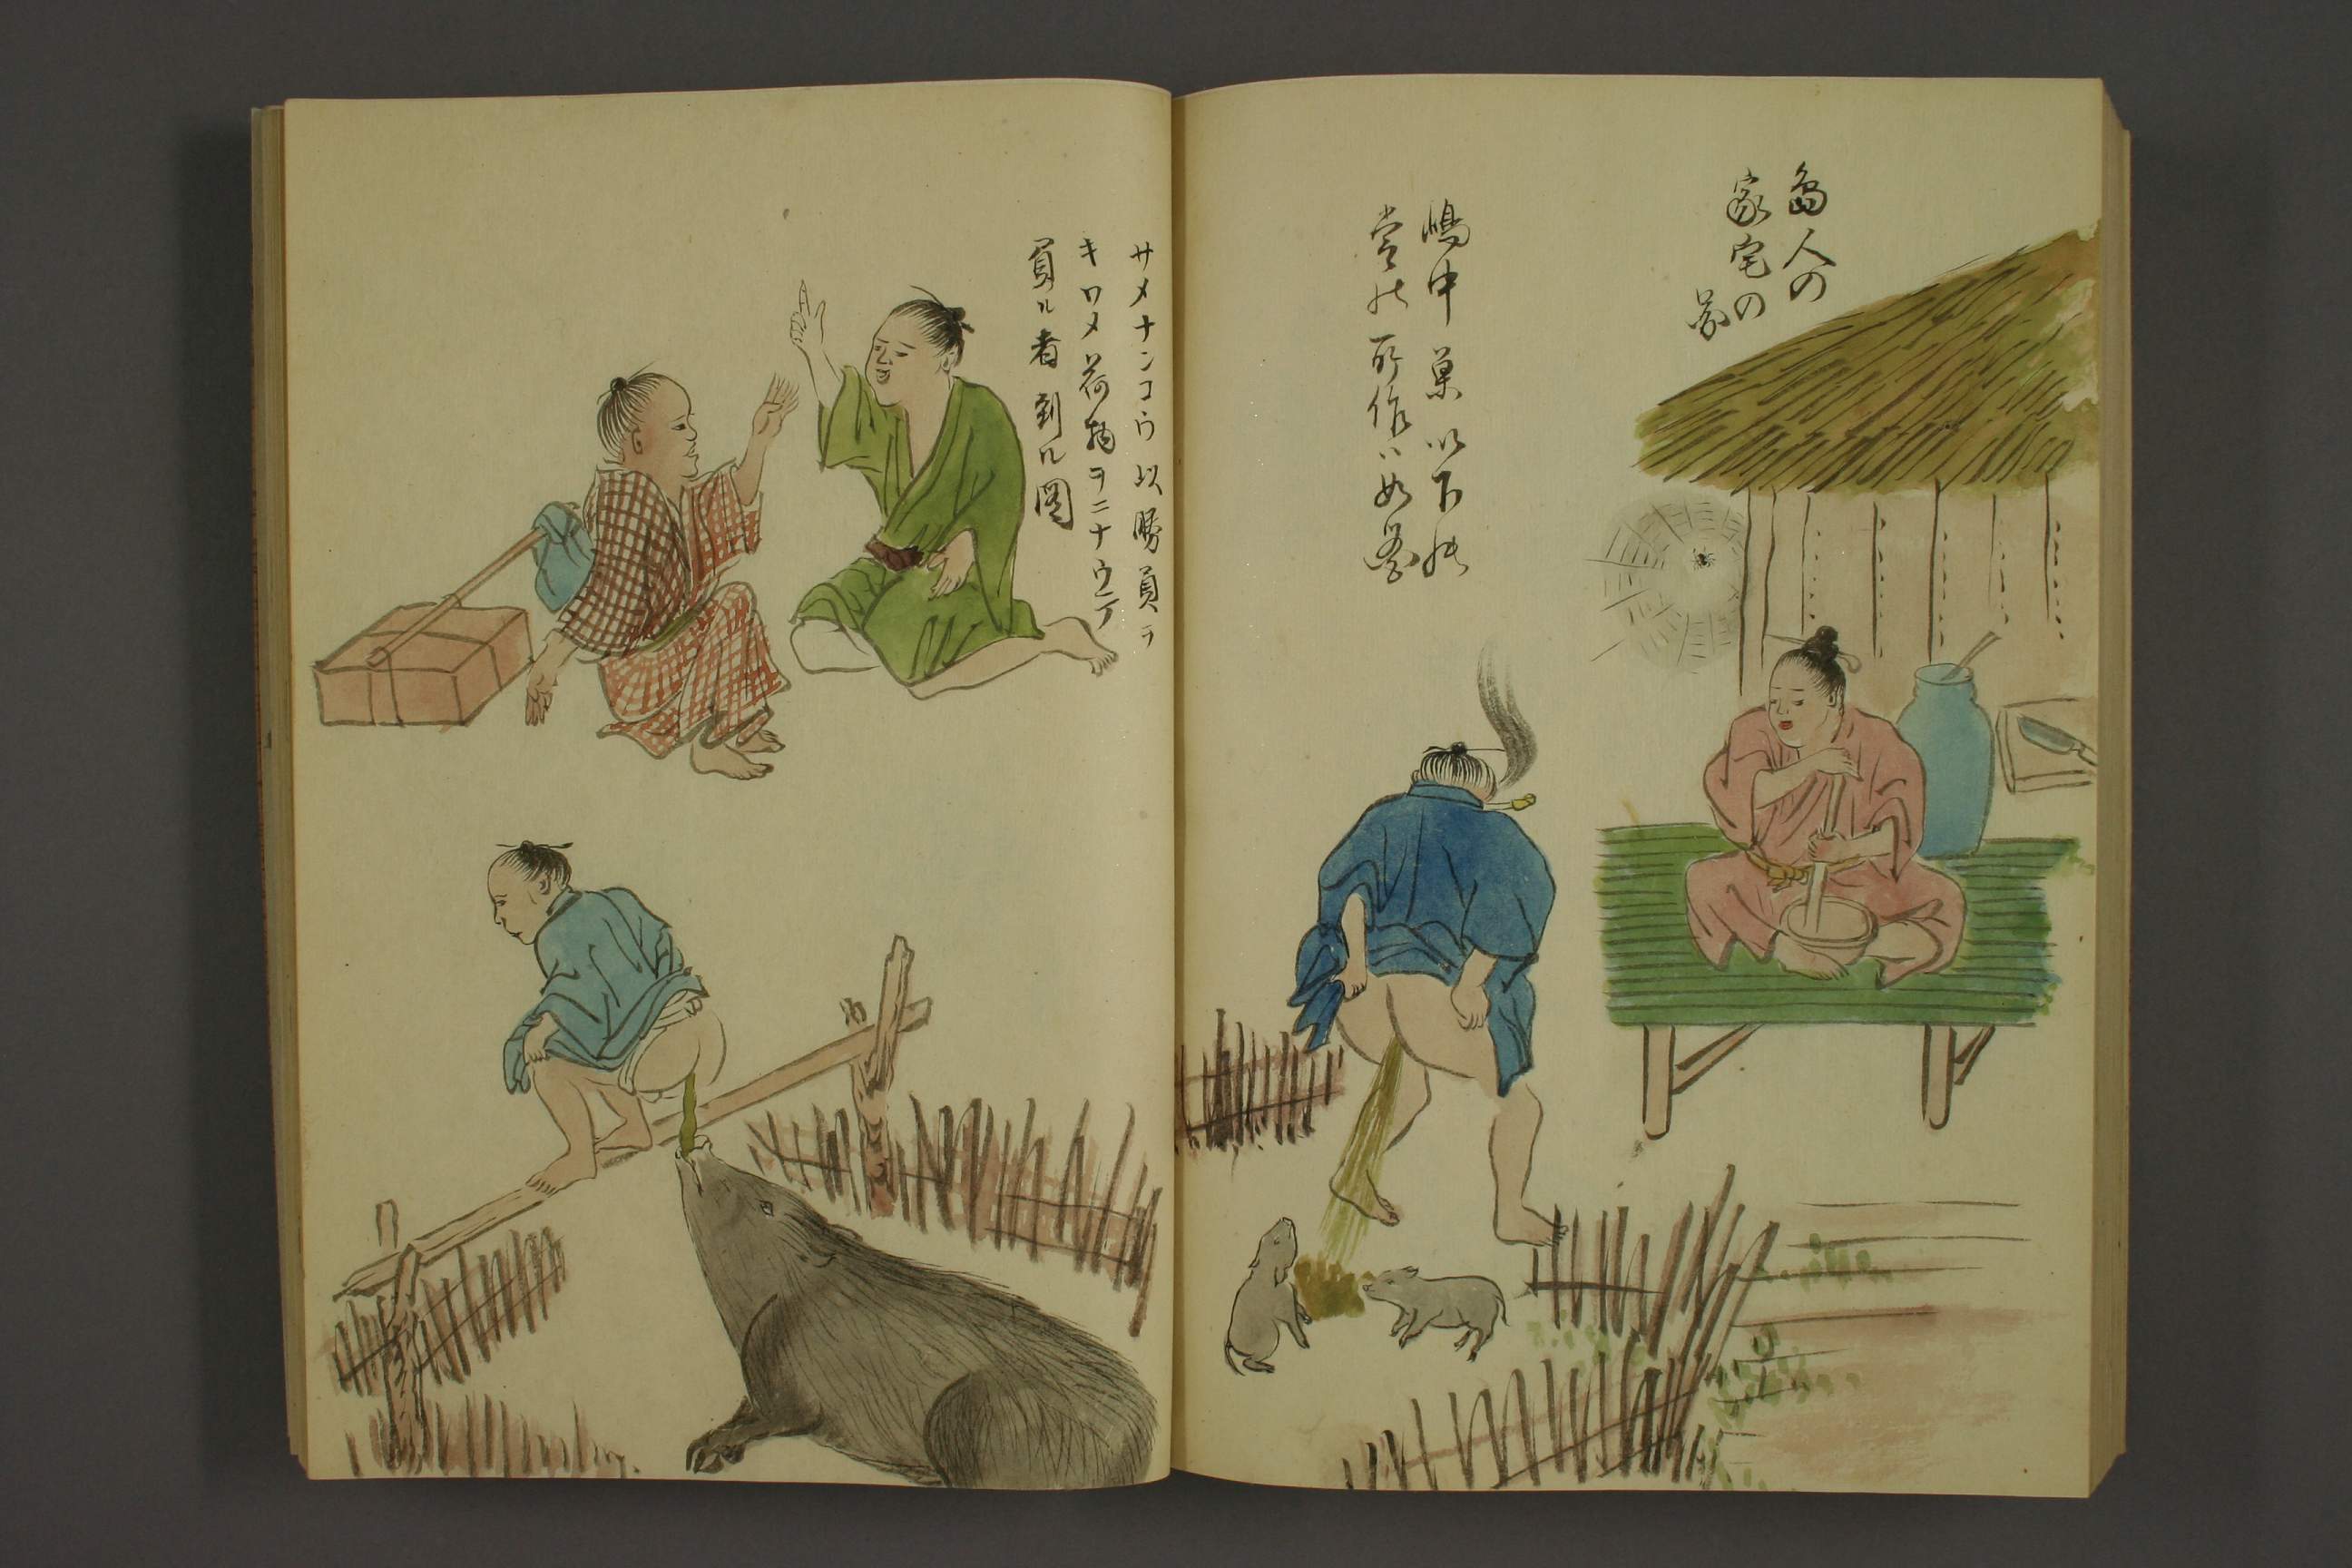 島人の
家宅の
図
嶋中 菓 以下の
常の所作ハ如図
サメナンコウ以勝負ヲ
キワメ荷物ヲニナウ丁
負ル者到ル圖